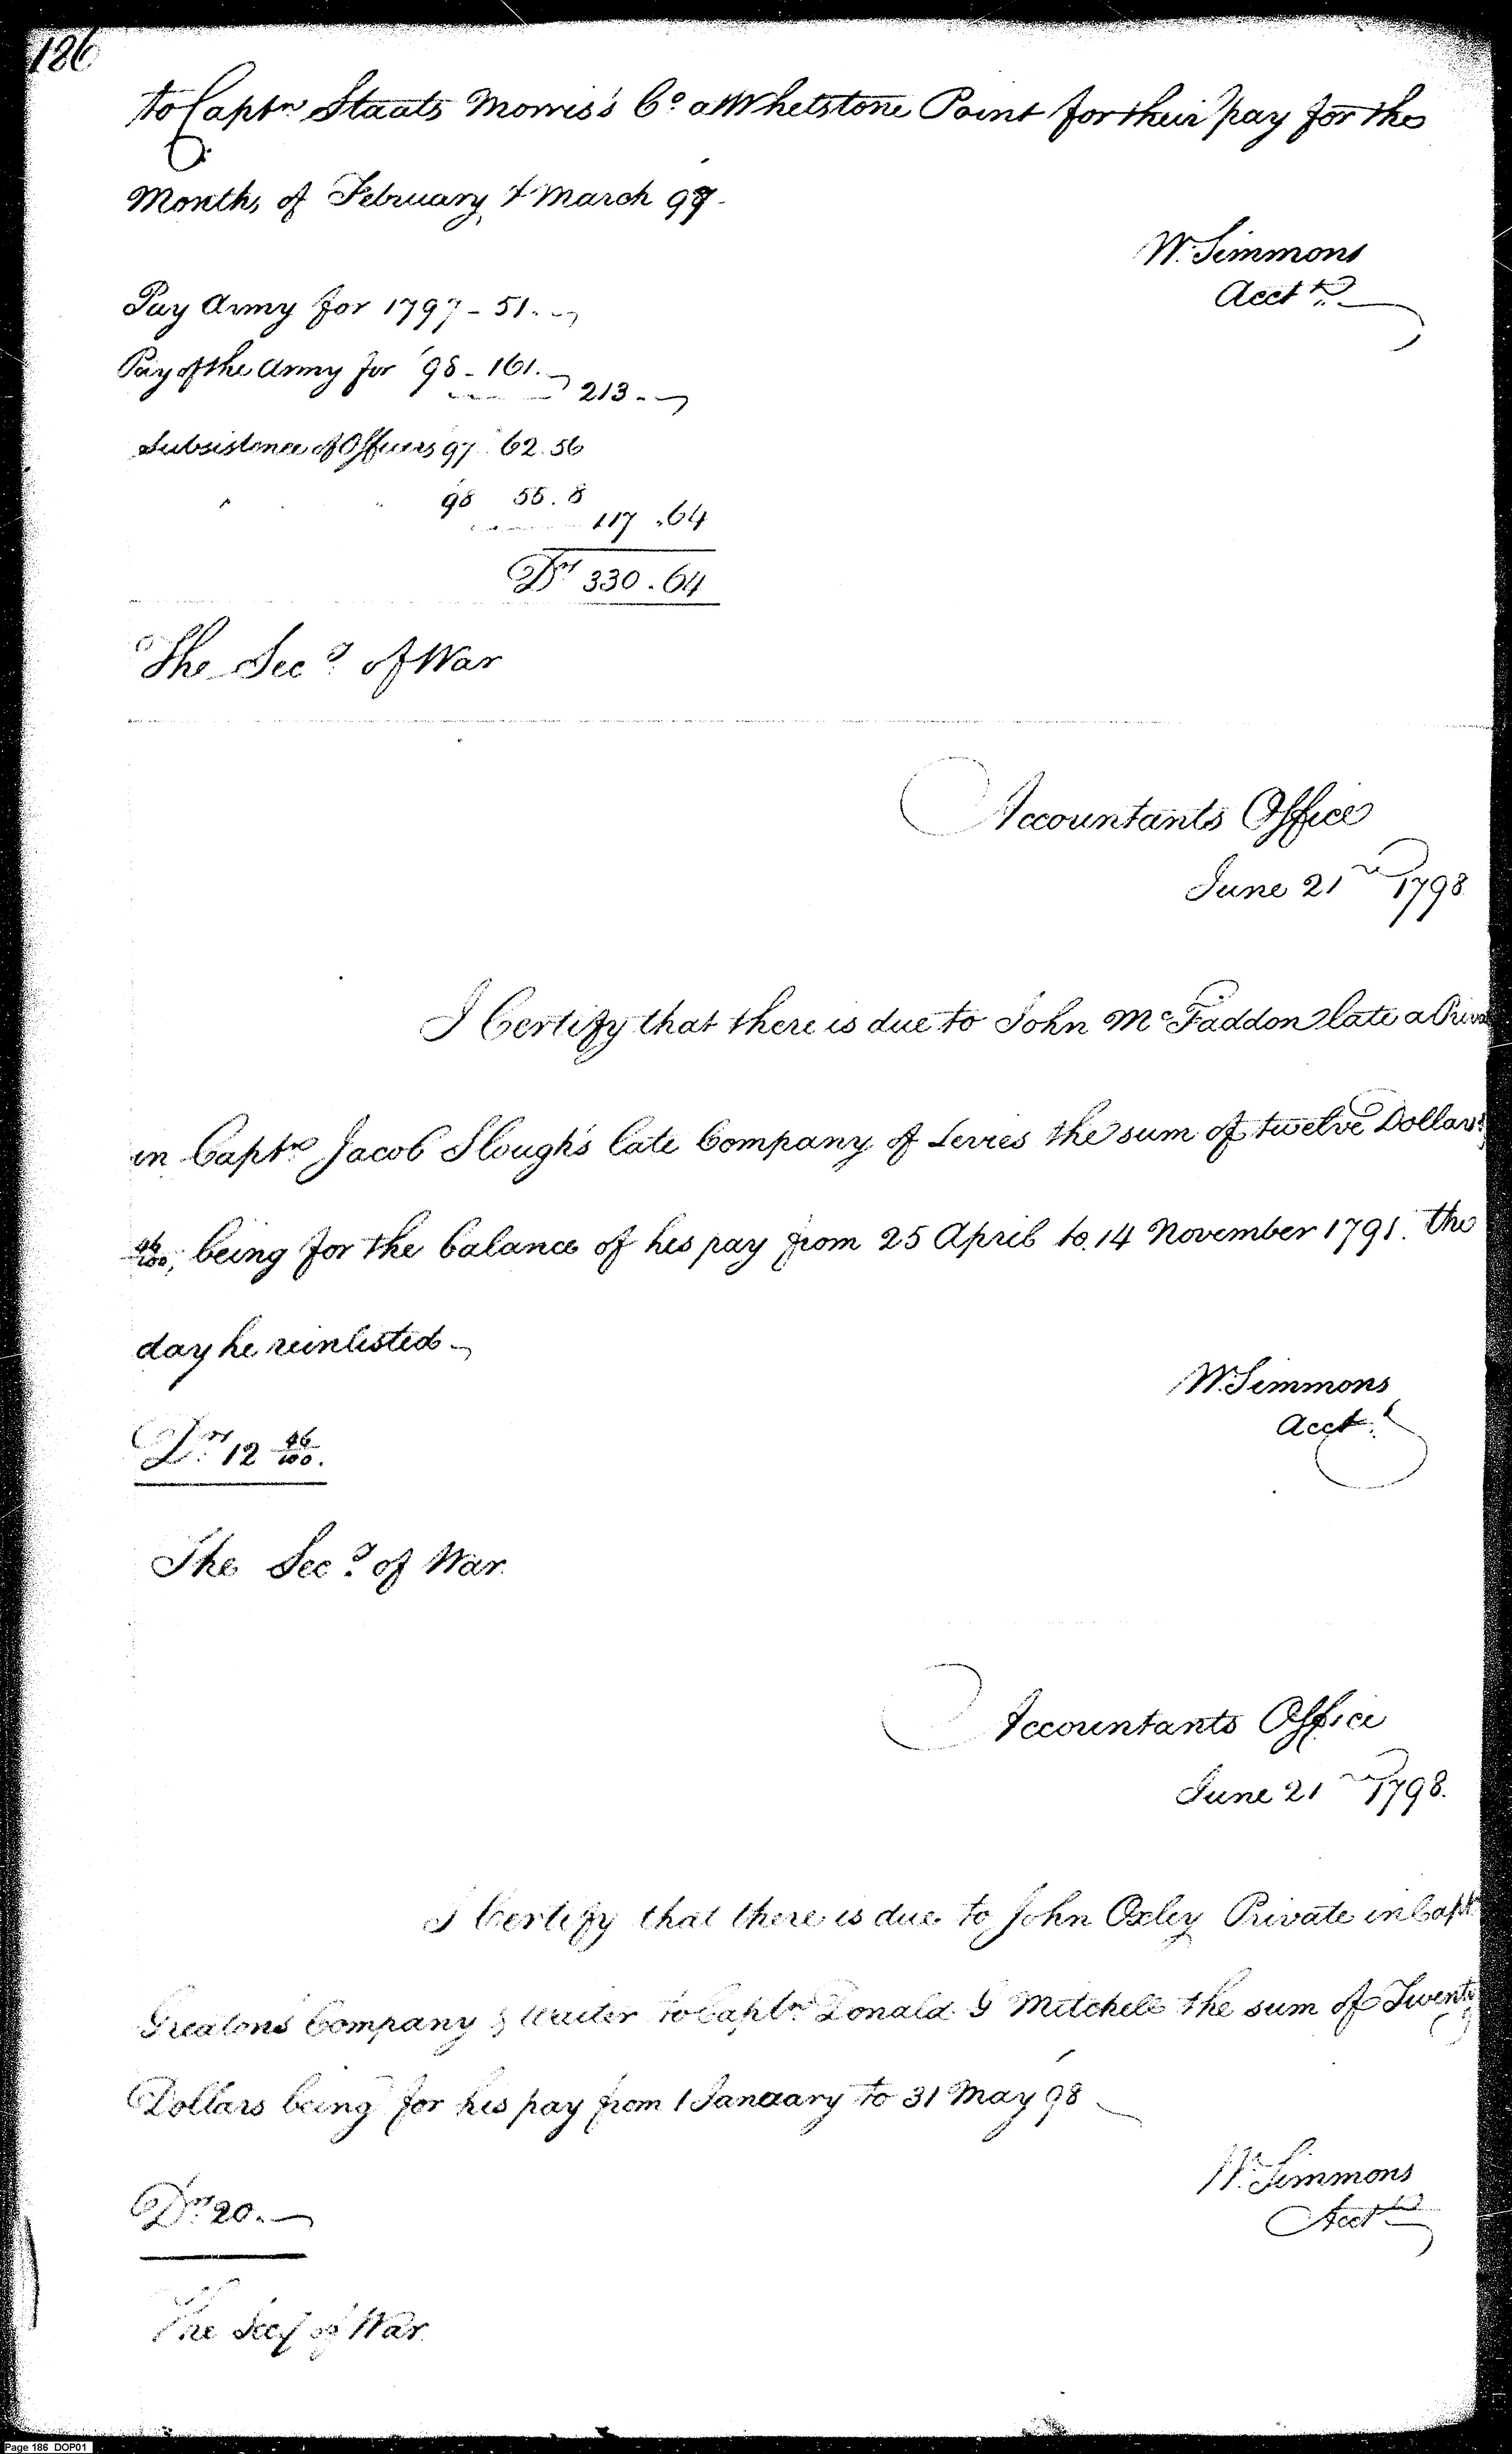 186
to Captn Staats Morris's Co at Whetstone Point for their pay for the
Months of February & March 98.
W. Simmons
Acctt
Pay Army for 1797 - 51.
Pay of the Army for '98 - 161.
213.
Subsistence of Officers 97 62.56
" " 98 55.8
117.64
Drs 330.64
The Secy of War
Accountants Office
June 21st 1798
I Certify that there is due to John McFaddon late a Priva
in Captn Jacob Slough's late Company of Levies the sum of twelve Dollars &
46/100, being for the balance of his pay from 25 April to 14 November 1791. the
day he reinlisted
W. Simmons
Acctt
Drs 12 46/100.
The Secy of War
Accountants Office
June 21st 1798.
I Certify that there is due to John Oxley Private in Captn
Greatons Company & Waiter to Captn Donald G Mitchell the sum of Twenty
Dollars being for his pay from 1 January to 31 May 98
W. Simmons
Acctt
Drs 20.
The Secy of War
Page 186 DOP01